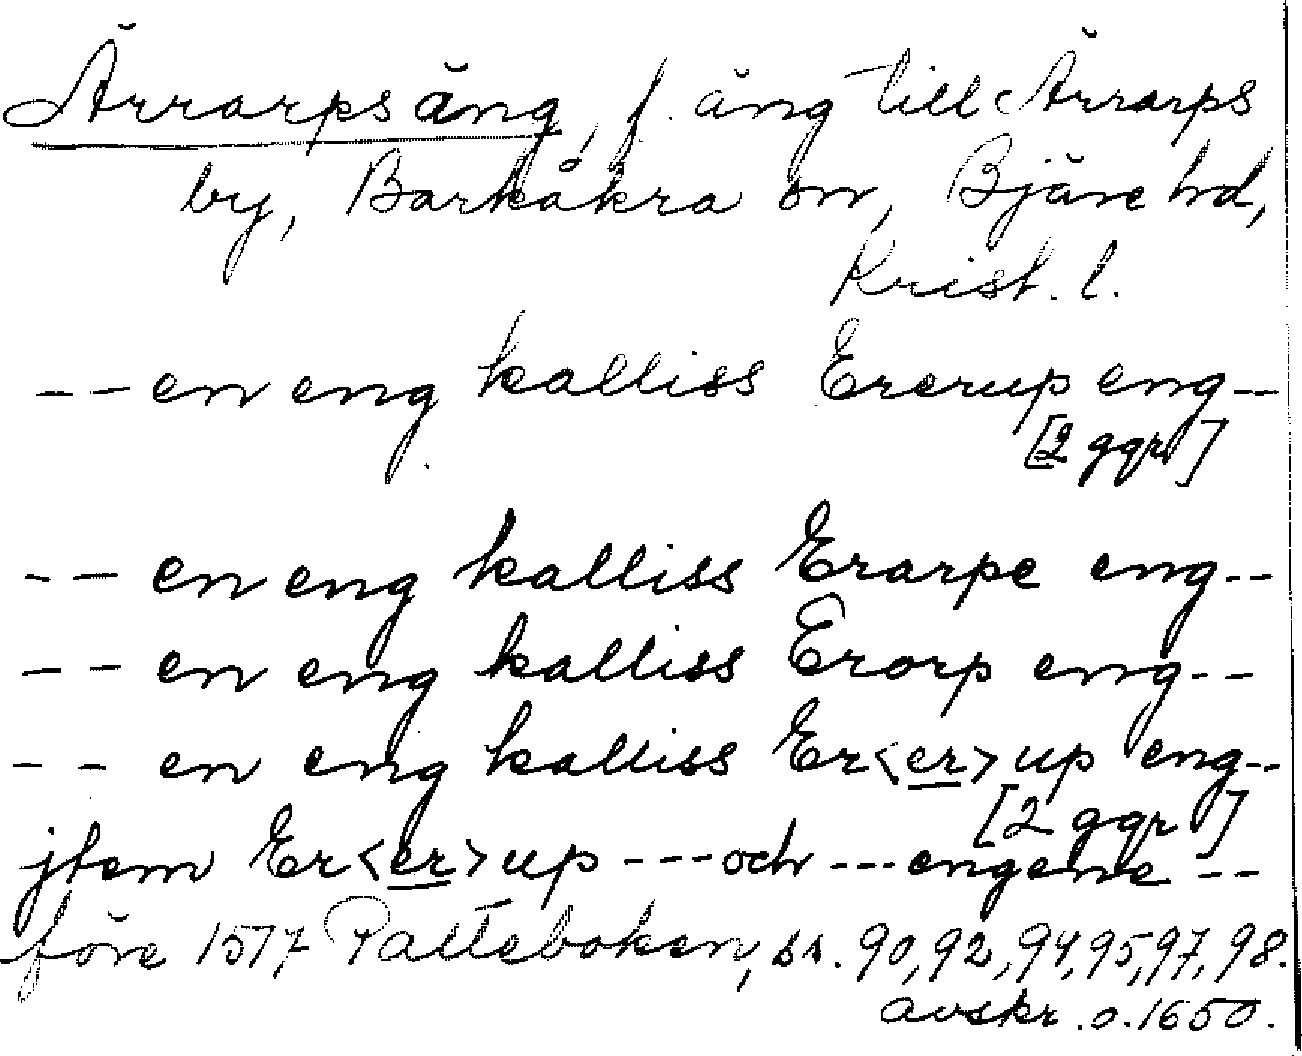 Ärrarpsäng, f. äng till Ärrarps
by, Barkåkra sn, Bjäre hd,
Krist. l.
-- en eng kalliss Ererup eng --
[2 ggr]
-- en eng kalliss Erarpe eng --
-- en eng kalliss Erorp eng --
-- en eng kalliss Er<er>up eng --
[2 ggr]
jtem Er<er>up --- och --- engene --
före 1577 Palteboken, ss. 90, 92, 94, 95, 97, 98.
avskr. o. 1650.